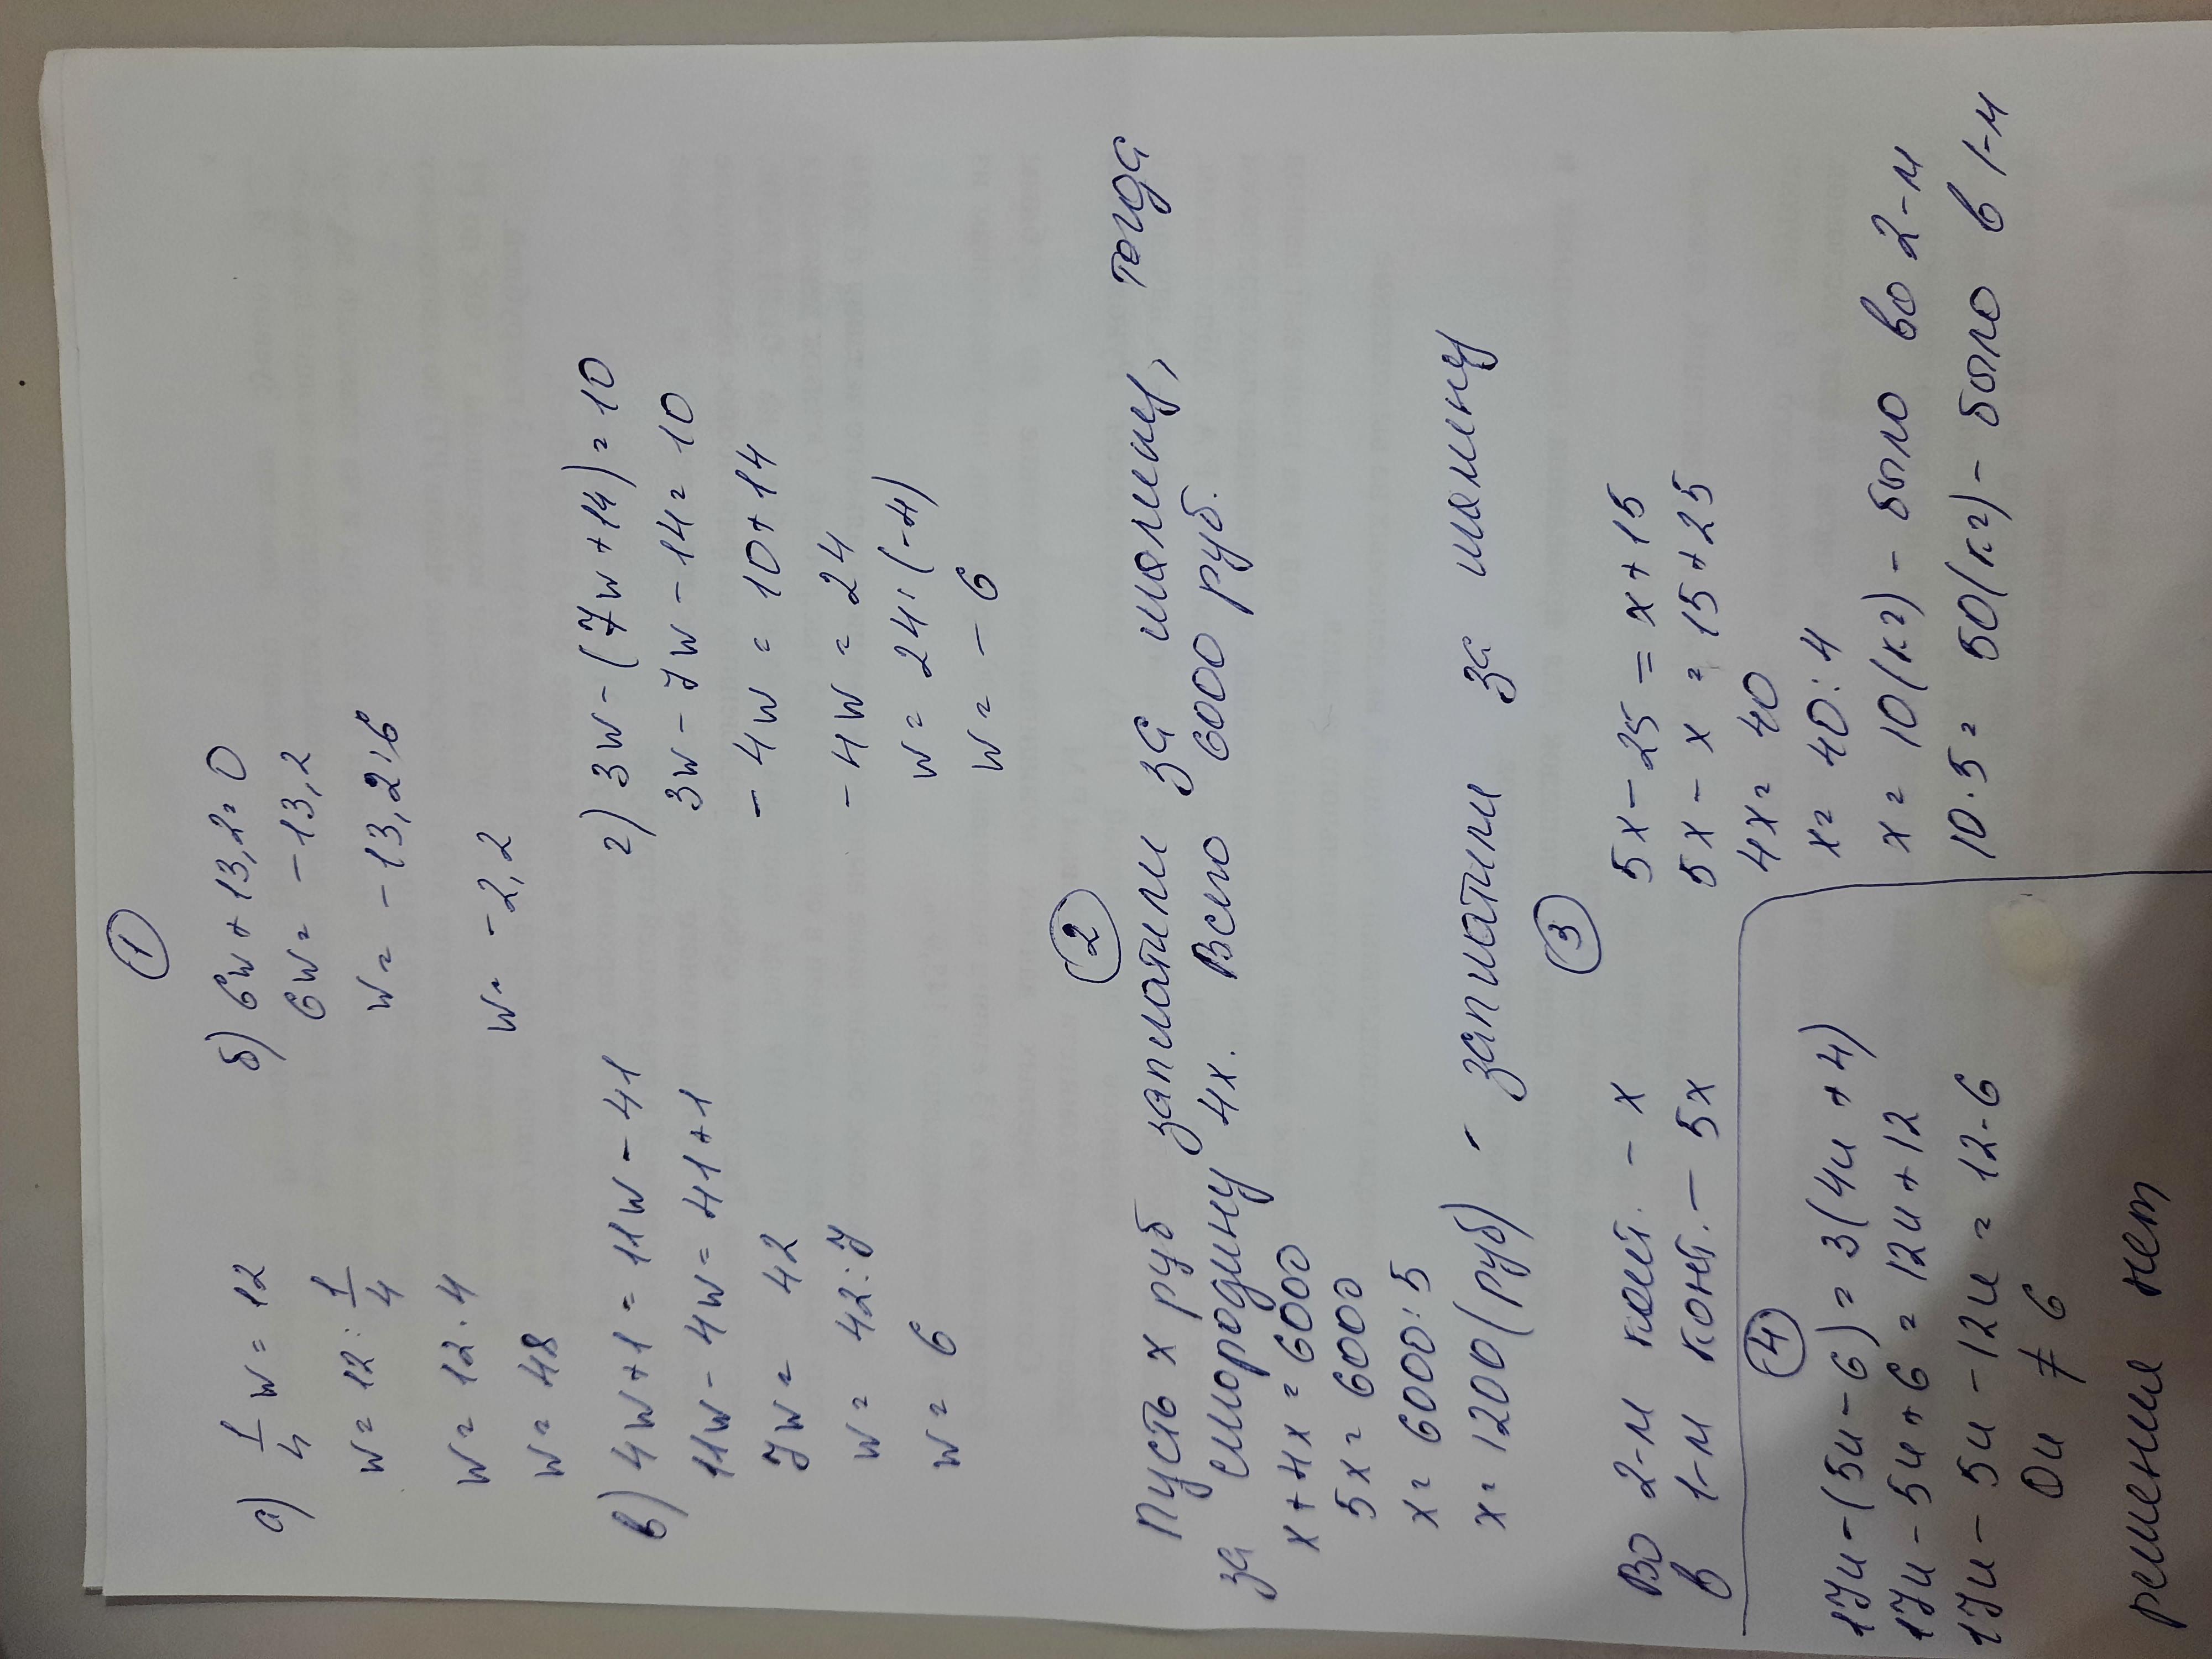 1
а) 1/4 w = 12
w = 12 : 1/4
w = 12 · 4
w = 48
б) 6w + 13,2 = 0
6w = -13,2
w = -13,2 : 6
w = -2,2
в) 4w + 1 = 11w - 41
11w - 4w = 41 + 1
7w = 42
w = 42 : 7
w = 6
г) 3w - (7w + 14) = 10
3w - 7w - 14 = 10
-4w = 10 + 14
-4w = 24
w = 24 : (-4)
w = -6
2
Пусть х руб заплатили за малину, тогда
за смородину 4х. Всего 6000 руб.
х + 4х = 6000
5х = 6000
х = 6000 : 5
х = 1200 (руб) - заплатили за малину
3
Во 2-м конт. - х
в 1-м конт. - 5х
5х - 25 = х + 15
5х - х = 15 + 25
4х = 40
х = 40 : 4
х = 10 (кг) - было во 2-м
10 · 5 = 50 (кг) - было в 1-м
4
17и - (5и - 6) = 3(4и + 4)
17и - 5и + 6 = 12и + 12
17и - 5и - 12и = 12 - 6
0и ≠ 6
решения нет